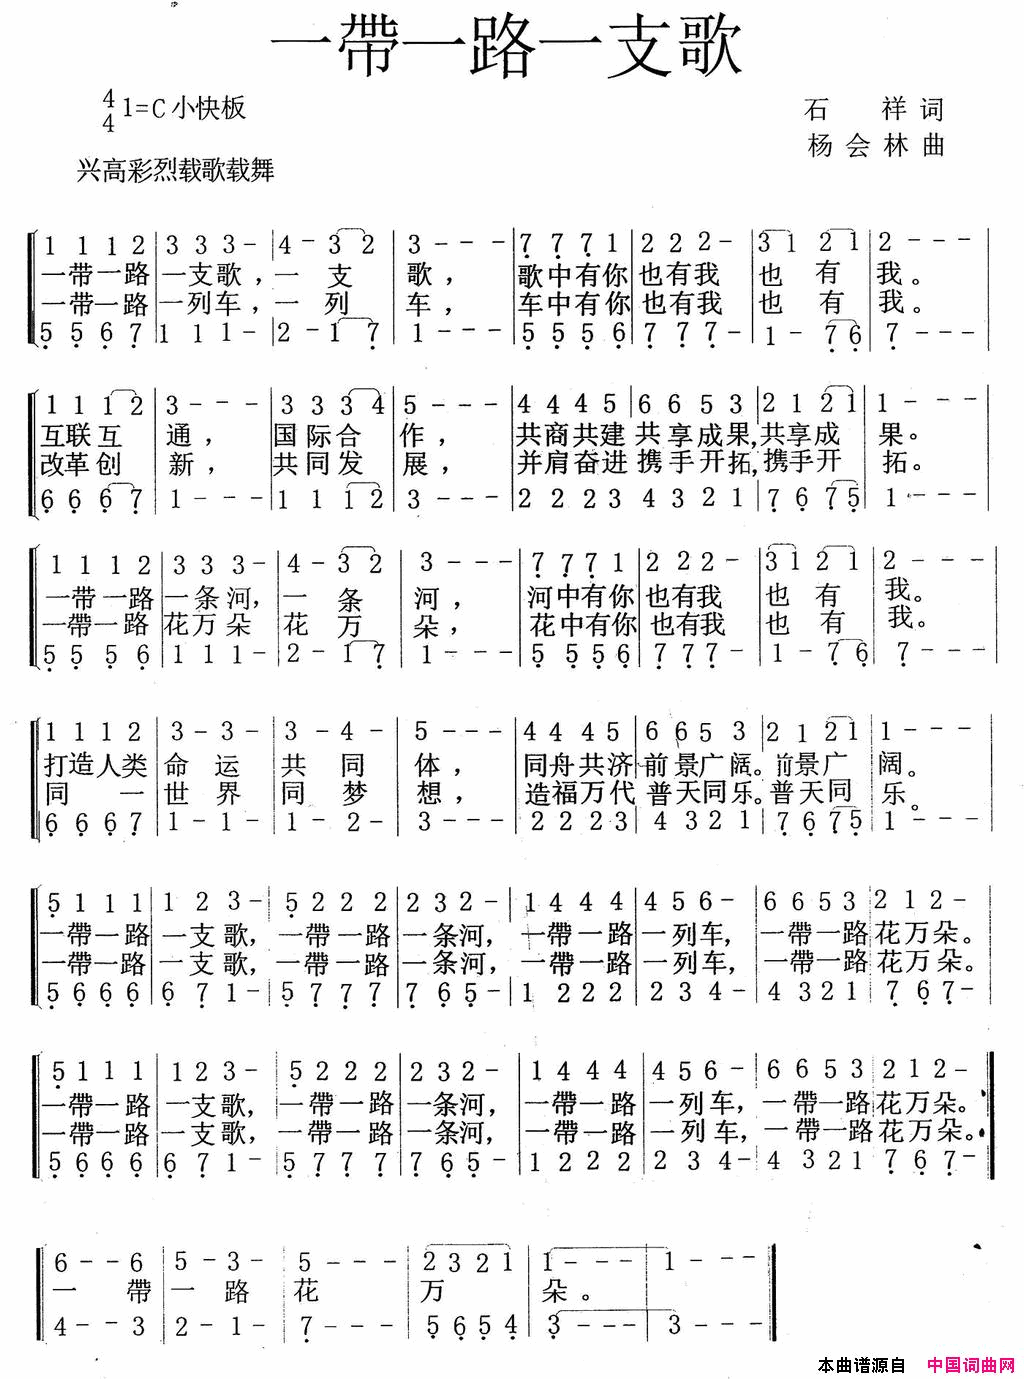 一帶一路一支歌
4/4 1=C 小快板
石 祥 词
杨 会 林 曲
兴高彩烈载歌载舞
1 1 1 2 | 3 3 3 - | 4 - 3 2 | 3 - - - | 7 7 7 1 | 2 2 2 - | 3 1 2 1 | 2 - - - |
一带一路 一支歌，一 支 歌， 歌中有你 也有我 也 有 我。
一带一路 一列车，一 列 车， 车中有你 也有我 也 有 我。
5 5 6 7 | 1 1 1 - | 2 - 1 7 | 1 - - - | 5 5 5 6 | 7 7 7 - | 1 - 7 6 | 7 - - - |
1 1 1 2 | 3 - - - | 3 3 3 4 | 5 - - - | 4 4 4 5 | 6 6 5 3 | 2 1 2 1 | 1 - - - |
互联互 通， 国际合 作， 共商共建 共享成果，共享成 果。
改革创 新， 共同发 展， 并肩奋进 携手开拓，携手开 拓。
6 6 6 7 | 1 - - - | 1 1 1 2 | 3 - - - | 2 2 2 3 | 4 3 2 1 | 7 6 7 5 | 1 - - - |
1 1 1 2 | 3 3 3 - | 4 - 3 2 | 3 - - - | 7 7 7 1 | 2 2 2 - | 3 1 2 1 | 2 - - - |
一带一路 一条河，一 条 河， 河中有你 也有我 也 有 我。
一带一路 花万朵 花 万 朵， 花中有你 也有我 也 有 我。
5 5 5 6 | 1 1 1 - | 2 - 1 7 | 1 - - - | 5 5 5 6 | 7 7 7 - | 1 - 7 6 | 7 - - - |
1 1 1 2 | 3 - 3 - | 3 - 4 - | 5 - - - | 4 4 4 5 | 6 6 5 3 | 2 1 2 1 | 1 - - - |
打造人类 命 运 共 同 体， 同舟共济 前景广阔。前景广 阔。
同 一 世 界 同 梦 想， 造福万代 普天同乐。普天同 乐。
6 6 6 7 | 1 - 1 - | 1 - 2 - | 3 - - - | 2 2 2 3 | 4 3 2 1 | 7 6 7 5 | 1 - - - |
5 1 1 1 | 1 2 3 - | 5 2 2 2 | 2 3 2 - | 1 4 4 4 | 4 5 6 - | 6 6 5 3 | 2 1 2 - |
一帶一路 一支歌，一帶一路 一条河，一帶一路 一列车，一帶一路 花万朵。
一帶一路 一支歌，一帶一路 一条河，一帶一路 一列车，一帶一路 花万朵。
5 6 6 6 | 6 7 1 - | 5 7 7 7 | 7 6 5 - | 1 2 2 2 | 2 3 4 - | 4 3 2 1 | 7 6 7 - |
5 1 1 1 | 1 2 3 - | 5 2 2 2 | 2 3 2 - | 1 4 4 4 | 4 5 6 - | 6 6 5 3 | 2 1 2 - |
一帶一路 一支歌，一帶一路 一条河，一帶一路 一列车，一帶一路 花万朵。
一帶一路 一支歌，一帶一路 一条河，一帶一路 一列车，一帶一路 花万朵。
5 6 6 6 | 6 7 1 - | 5 7 7 7 | 7 6 5 - | 1 2 2 2 | 2 3 4 - | 4 3 2 1 | 7 6 7 - |
6 - - 6 | 5 - 3 - | 5 - - - | 2 3 2 1 | 1 - - - | 1 - - - |
一 帶 一 路 花 万 朵。
4 - - 3 | 2 - 1 - | 7 - - - | 5 6 5 4 | 3 - - - | 3 - - - |
本曲谱源自 中国词曲网